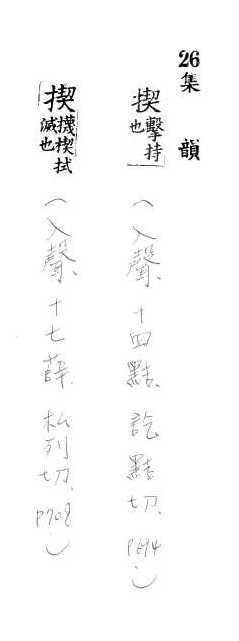 26 集韻
揳擊持也（入聲、十四黠、訖黠切、P694.）
揳攕揳拭滅也（入聲、十七薛、私列切、P708.）